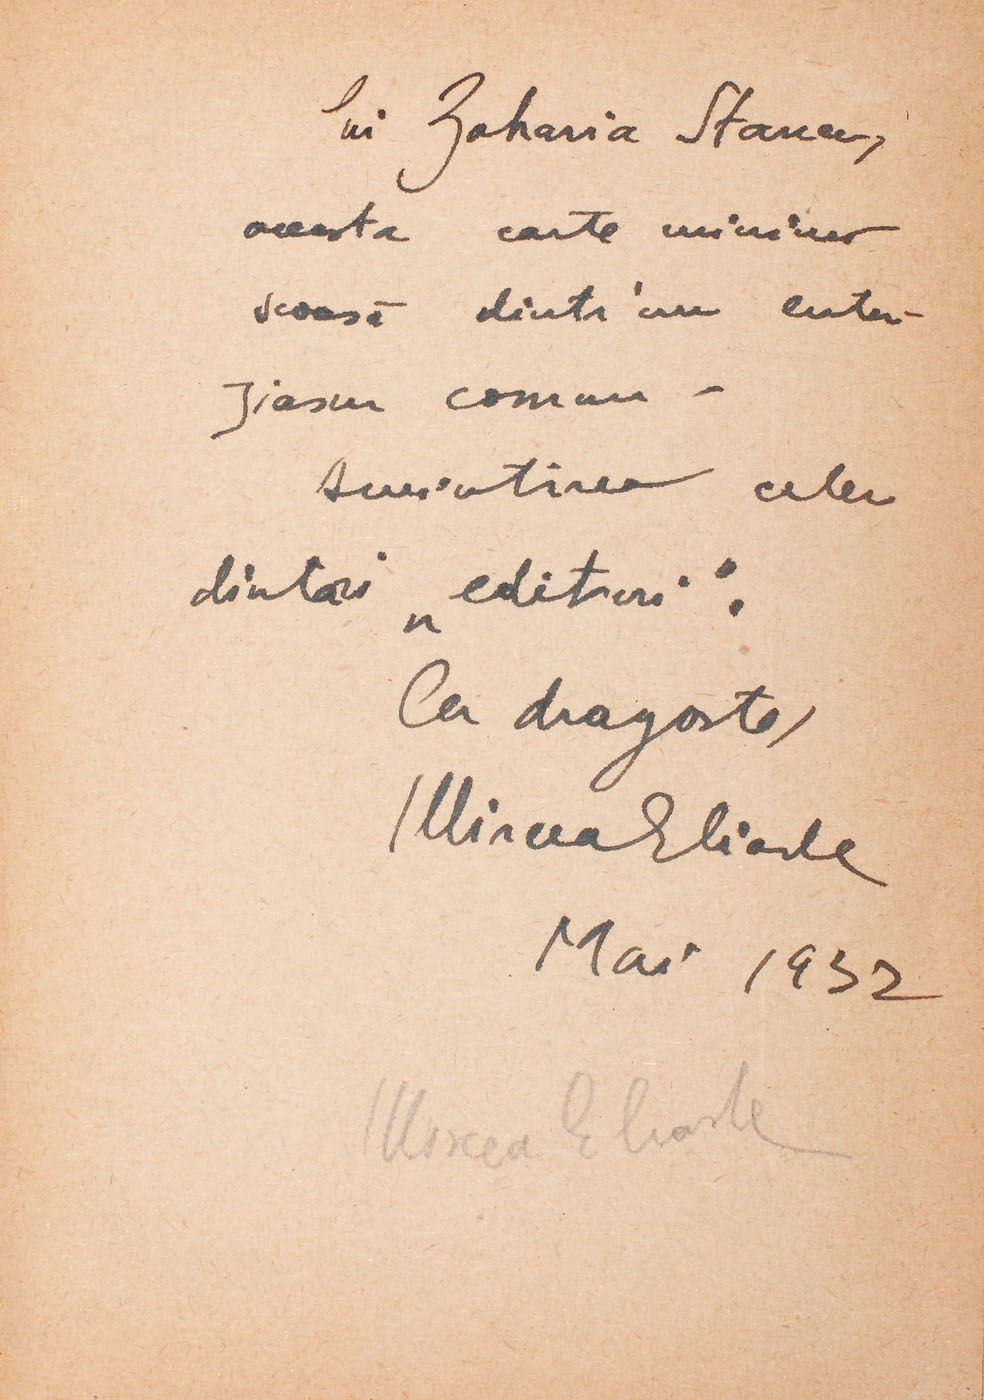 Lui Zaharia Stancu,
aceasta carte minimă
scoasă dintr'un entu-
ziasm comun –
Amintirea celor
dintâi „edituri”.
Cu dragoste,
Mircea Eliade
Mai 1932
Mircea Eliade